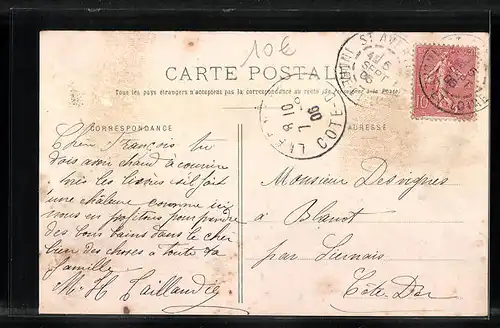 10€
CARTE POSTALE
Tous les pays étrangers n'acceptent pas la correspondance au recto. Se renseigner à la Poste.
CORRESPONDANCE
ADRESSE
Cher François tu
dois avoir chaud à courir
après les lièvres s'il fait
une chaleur comme ici
nous en profitons pour prendre
des bons bains dans le cher
bien des choses à toute ta
famille
M. H. Taillandier
Monsieur Desvignes
à Blanot
par Liernais
Côte-D'or
COTE
10